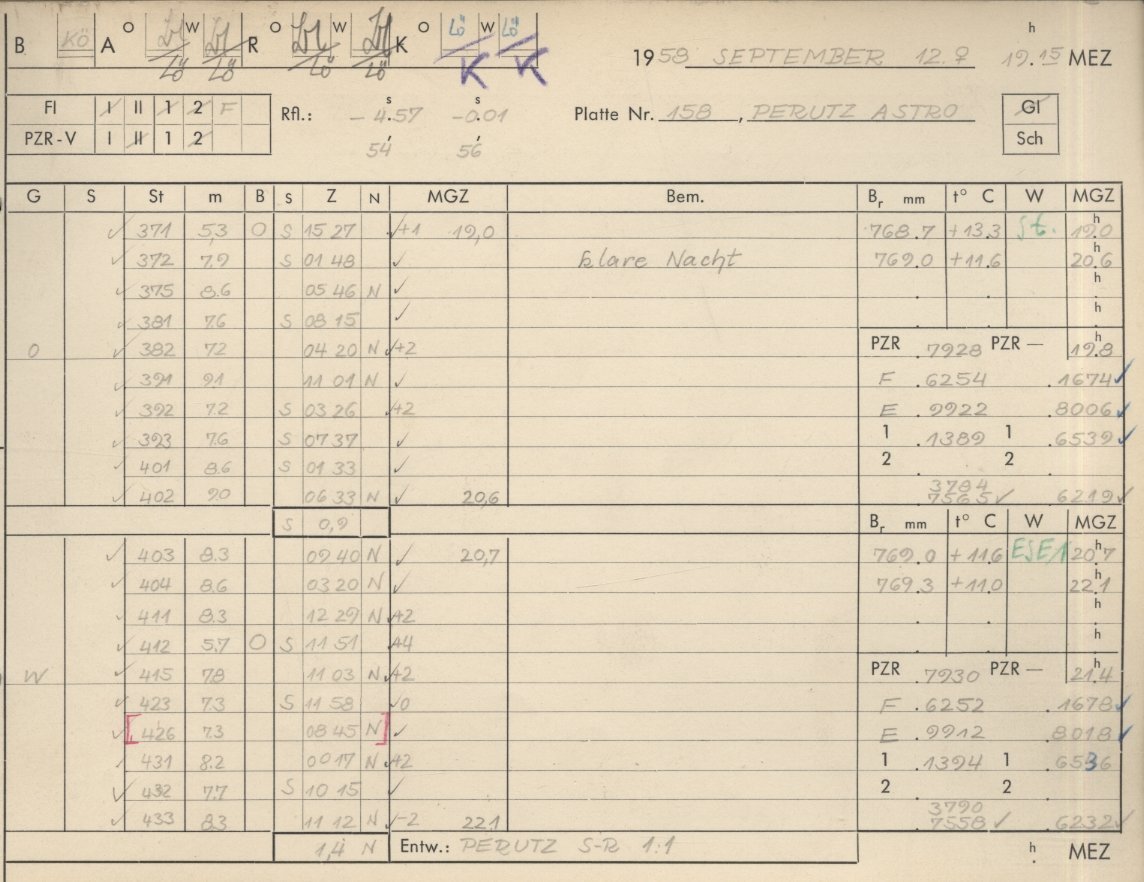 B KÖ A O W R O W K O Lö W Lö h
Lö Lö Lö Lö K K
1958 SEPTEMBER 12. ♀ 19.15 MEZ
FI I II 1 2 F Rfl.: - 4.57 s -0.01 s Platte Nr. 158, PERUTZ ASTRO GI
PZR-V I II 1 2 54 56 Sch
G S St m B S Z N MGZ Bem. Br mm t° C W MGZ
✓ 371 5,3 O S 15 27 ✓+1 19,0 768.7 +13.3 St. 19.0 h
✓ 372 7.9 S 01 48 ✓ klare Nacht 769.0 +11.6 20.6 h
✓ 375 8.6 05 46 N ✓ h
✓ 381 7.6 S 08 15 ✓ h
O ✓ 382 7.2 04 20 N ✓+2 PZR .7928 PZR — 19.8 h
✓ 391 9.1 11 01 N ✓ F .6254 .1674 ✓
✓ 392 7.2 S 03 26 +2 E .9922 .8006 ✓
✓ 393 7.6 S 07 37 ✓ 1 .1389 1 .6539 ✓
✓ 401 8.6 S 01 33 ✓ 2 2
✓ 402 9.0 06 33 N ✓ 20,6 3784 7565 ✓ 6219 ✓
S 0,9 Br mm t° C W MGZ
✓ 403 8.3 09 40 N ✓ 20,7 769.0 +11.6 ESE1 20.7 h
✓ 404 8.6 03 20 N ✓ 769.3 +11.0 22.1 h
✓ 411 8.3 12 29 N +2 h
✓ 412 5.7 O S 11 51 +4 h
W ✓ 415 7.8 11 03 N ✓+2 PZR .7930 PZR — 21.4 h
✓ 423 7.3 S 11 58 ✓0 F .6252 .1678 ✓
✓ [ 426 7.3 08 45 N ] ✓ E .9912 .8018 ✓
✓ 431 8.2 00 17 N +2 1 .1394 1 .6536
✓ 432 7.7 S 10 15 ✓ 2 2
✓ 433 8.3 11 12 N ✓-2 22,1 3790 7558 ✓ 6232 ✓
1,4 N Entw.: PERUTZ S-R 1:1 h MEZ